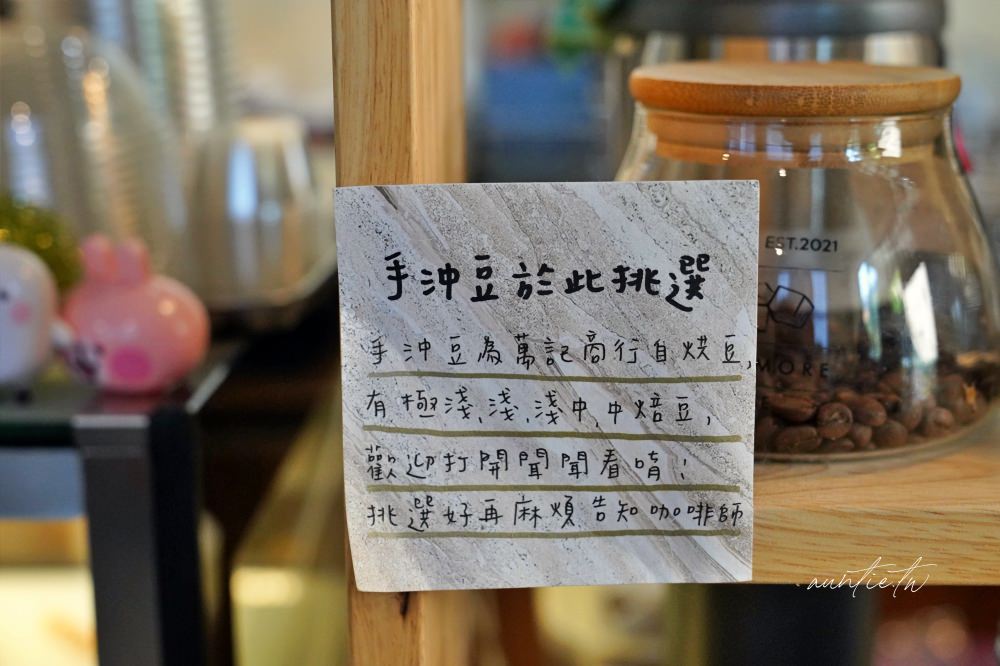 手沖豆於此挑選
手沖豆為萬記商行自烘豆,
有極淺,淺,淺中,中焙豆,
歡迎打開聞聞看唷!
挑選好再麻煩告知咖啡師
EST.2021
MORE
auntie.tw